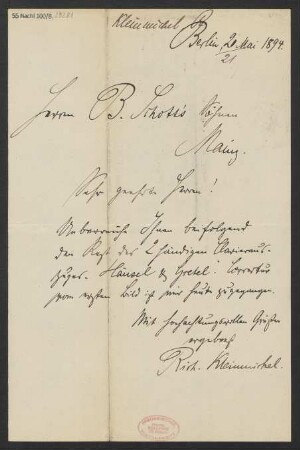 55 Nachl 100/B,
Kleinmichel
Berlin, 20 Mai 1894.
21
Herren B. Schott's Söhnen
Mainz.
Sehr geehrte Herren!
Ueberreiche Ihnen beifolgend
den Rest des 2händigen Clavieraus-
zuges. Hänsel & Gretel: Correctur
vom ersten Bild ist mir heute zugegangen.
Mit hochachtungsvollen Grüßen
ergebenst
Rich. Kleinmichel.